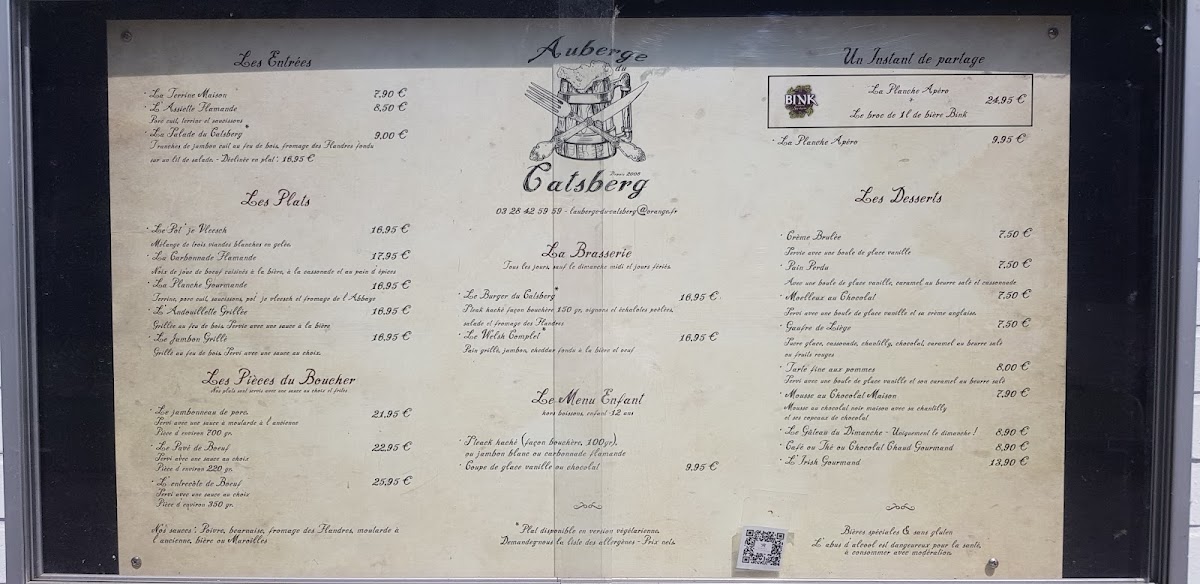 Les Entrées
· La Terrine Maison 7,90 €
· L'Assiette Flamande 8,50 €
Porc cuit, terrine et saucissons
· La Salade du Catsberg* 9,00 €
Tranches de jambon cuit au feu de bois, fromage des Flandres fondu
sur un lit de salade. - Déclinée en plat : 16,95 €
Les Plats
· Le Pot' je Vleesch 16,95 €
Mélange de trois viandes blanches en gelée.
· La Carbonnade Flamande 17,95 €
Noix de joue de boeuf cuisinés à la bière, à la cassonade et au pain d'épices
· La Planche Gourmande 16,95 €
Terrine, porc cuit, saucissons, pot' je vleesch et fromage de l'Abbaye
· L'Andouillette Grillée 16,95 €
Grillée au feu de bois. Servie avec une sauce à la bière
· Le Jambon Grillé 16,95 €
Grillé au feu de bois. Servi avec une sauce au choix.
Les Pièces du Boucher
Nos plats sont servis avec une sauce au choix et frites
· Le jambonneau de porc. 21,95 €
Servi avec une sauce à moutarde à l'ancienne
Pièce d'environ 700 gr.
· Le Pavé de Boeuf 22,95 €
Servi avec une sauce au choix
Pièce d'environ 220 gr.
· L'entrecôte de Boeuf 25,95 €
Servi avec une sauce au choix
Pièce d'environ 350 gr.
Nos sauces : Poivre, bearnaise, fromage des Flandres, moutarde à
l'ancienne, bière ou Maroilles
Auberge
du
Catsberg
Depuis 2006
03 28 42 59 59 - l'auberge-du-catsberg@orange.fr
La Brasserie
Tous les jours, sauf le dimanche midi et jours fériés.
· Le Burger du Catsberg* 16,95 €
Steak haché façon bouchère 150 gr, oignons et échalotes poêlées,
salade et fromage des Flandres
· Le Welsh Complet* 16,95 €
Pain grillé, jambon, cheddar fondu à la bière et oeuf
Le Menu Enfant
hors boissons, enfant -12 ans
· Steack haché (façon bouchère, 100gr),
ou jambon blanc ou carbonnade flamande
· Coupe de glace vanille ou chocolat 9,95 €
*Plat disponible en version végétarienne.
Demandez-nous la liste des allergènes - Prix nets.
Un Instant de partage
BINK
La Planche Apéro
+
Le broc de 1l de bière Bink
24,95 €
· La Planche Apéro 9,95 €
Les Desserts
· Crème Brulée 7,50 €
Servie avec une boule de glace vanille
· Pain Perdu 7,50 €
Avec une boule de glace vanille, caramel au beurre salé et cassonnade
· Moelleux au Chocolat 7,50 €
Servi avec une boule de glace vanille et sa crème anglaise.
· Gaufre de Liège 7,50 €
Sucre glace, cassonade, chantilly, chocolat, caramel au beurre salé
ou fruits rouges
· Tarte fine aux pommes 8,00 €
Servi avec une boule de glace vanille et son caramel au beurre salé
· Mousse au Chocolat Maison 7,90 €
Mousse au chocolat noir maison avec sa chantilly
et ses copeaux de chocolat
· Le Gâteau du Dimanche - Uniquement le dimanche ! 8,90 €
· Café ou Thé ou Chocolat Chaud Gourmand 8,90 €
· L'Irish Gourmand 13,90 €
Bières spéciales & sans gluten
L'abus d'alcool est dangereux pour la santé,
à consommer avec modération.